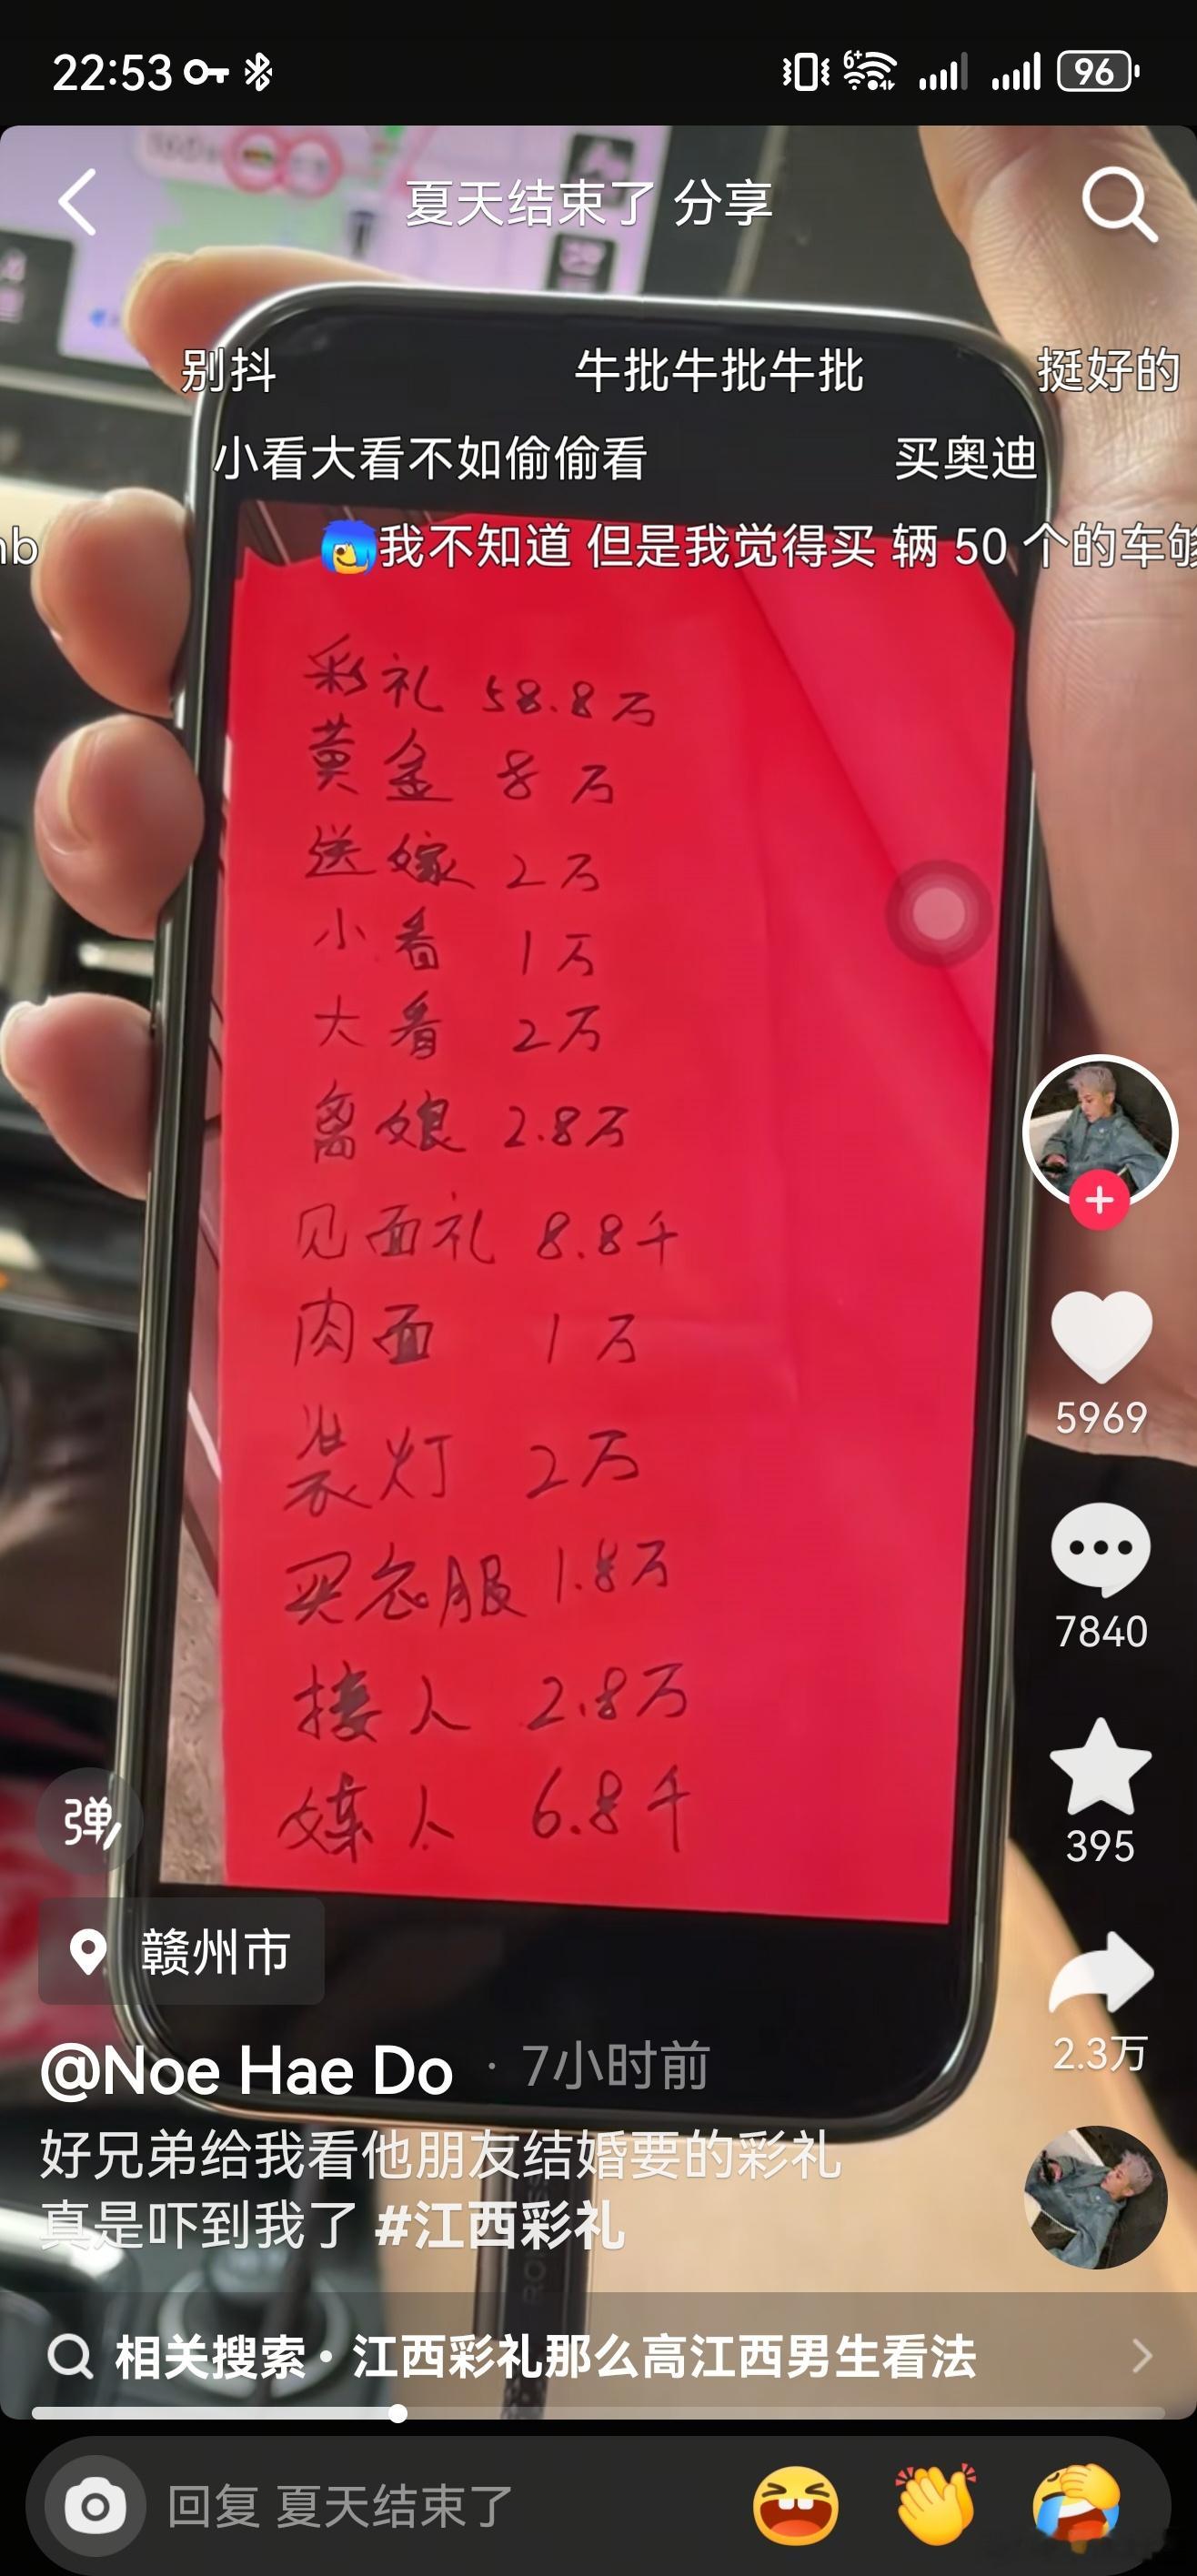 22:53
96
夏天结束了 分享
别抖 牛批牛批牛批 挺好的
小看大看不如偷偷看 买奥迪
nb 我不知道 但是我觉得买 辆 50 个的车够
彩礼 58.8万
黄金 8万
送嫁 2万
小看 1万
大看 2万
离娘 2.8万
见面礼 8.8千
肉面 1万
装灯 2万
买衣服 1.8万
接人 2.8万
媒人 6.8千
5969
7840
395
2.3万
弹
赣州市
@Noe Hae Do · 7小时前
好兄弟给我看他朋友结婚要的彩礼
真是吓到我了 #江西彩礼
相关搜索·江西彩礼那么高江西男生看法
回复 夏天结束了